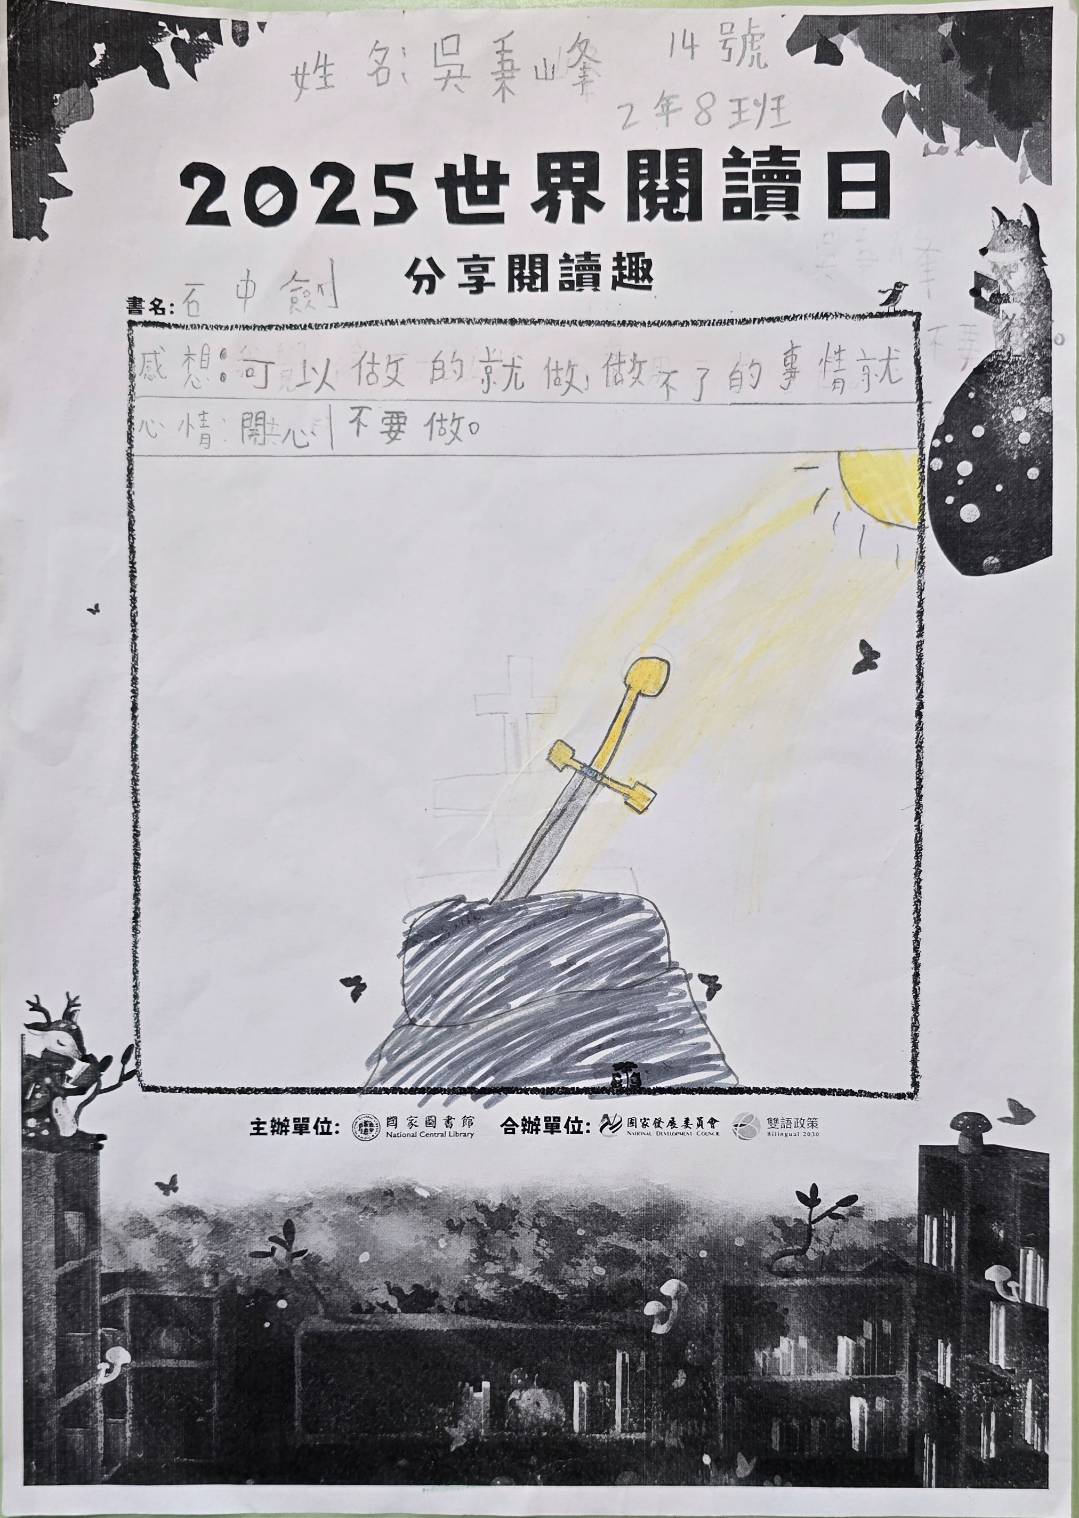 姓名:吳秉峰 14號
2年8班
2025世界閱讀日
分享閱讀趣
書名:石中劍
感想:可以做的就做,做不了的事情就
心情:開心 不要做。
主辦單位: 國家圖書館 National Central Library 合辦單位: 國家發展委員會 National Development Council 雙語政策 Bilingual 2030